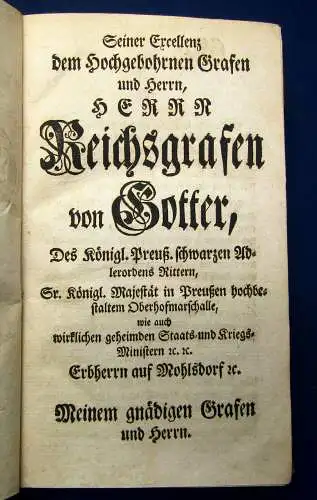 Seiner Excellenz
dem Hochgebohrnen Grafen
und Herrn,
HERRN
Reichsgrafen
von Gotter,
Des Königl. Preuß. schwarzen Ad-
lerordens Rittern,
Sr. Königl. Majestät in Preußen hochbe-
staltem Oberhofmarschalle,
wie auch
wirklichen geheimden Staats-und Kriegs-
Ministern ꝛc. ꝛc.
Erbherrn auf Mohlsdorf ꝛc.
Meinem gnädigen Grafen
und Herrn.